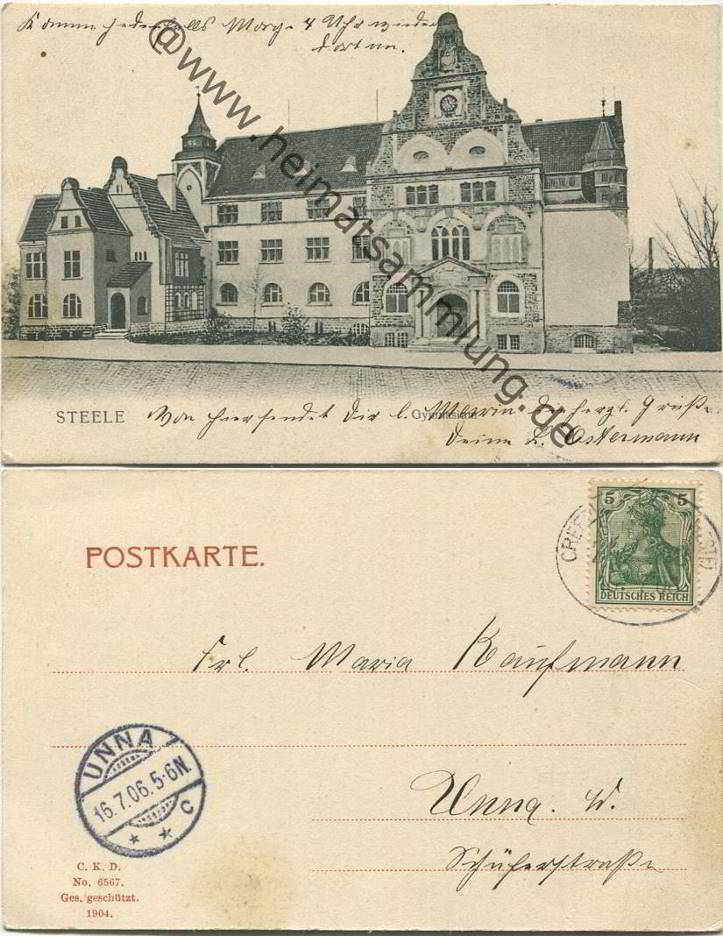 Komme jedenfalls Morg. 4 Uhr wieder
dort an.
@www.heimatsammlung.de
STEELE
Gymnasium
Von hier sendet Dir l. Maria die herzl. Grüße
Deine L. Ostermann
POSTKARTE.
5 5
DEUTSCHES REICH
Frl. Maria Kaufmann
UNNA
16.7.06.5-6N.
* * C
Unna. W.
Schäferstraße
C. K. D.
No. 6567.
Ges. geschützt.
1904.